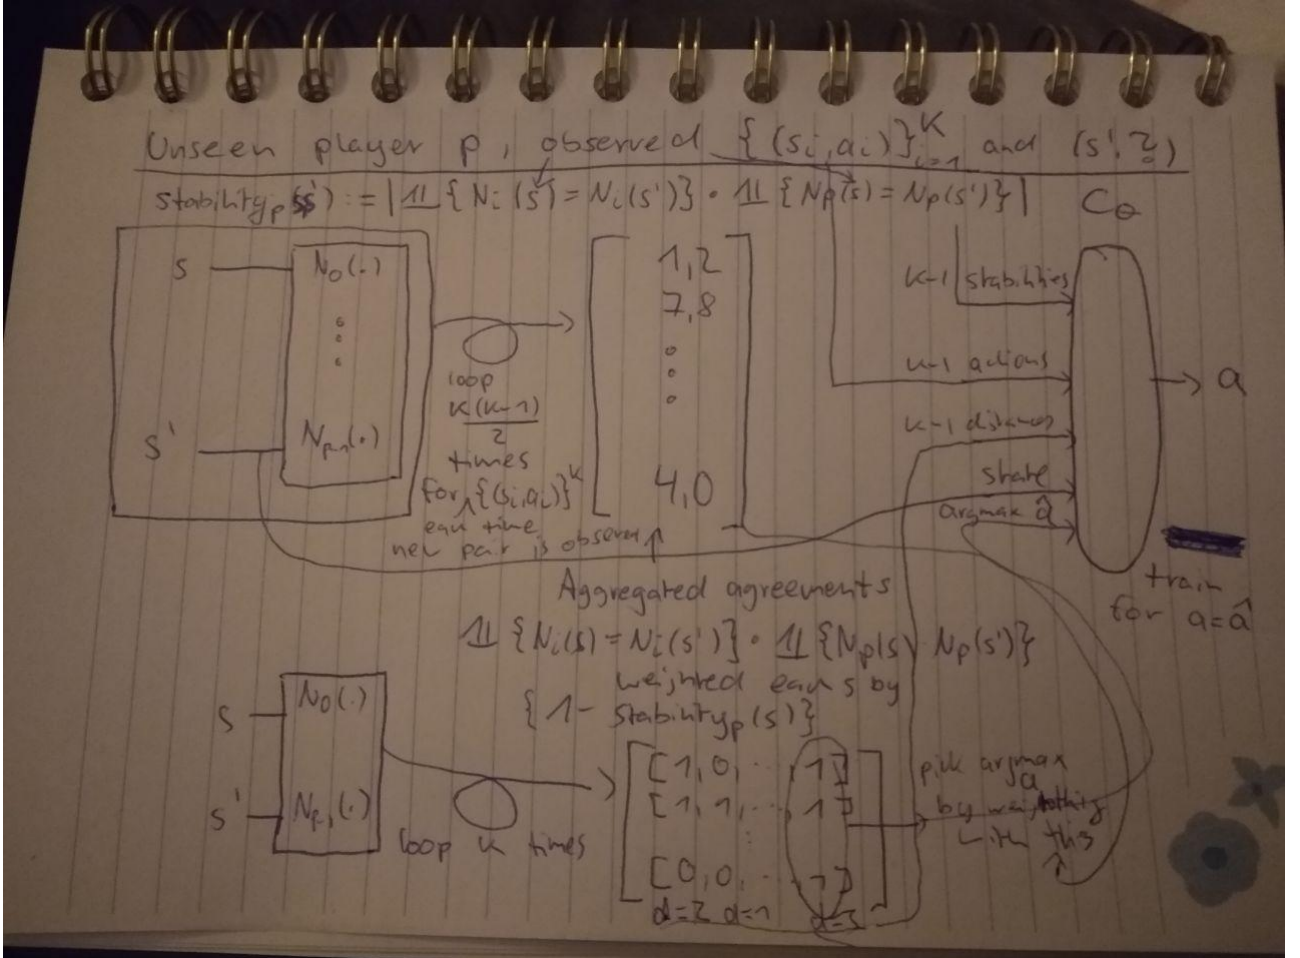 Unseen player p, observed {(si,ai)}^K_i=1 and (s',?)
stability_p(s') := | 𝟙{Ni(s)=Ni(s')} · 𝟙{Np(s)=Np(s')} |
Cθ
s
N0(.)
s'
Np-1(.)
loop
K(K-1)
2
times
for {(si,ai)}^K
each time
new pair is observed
1,2
7,8
4,0
K-1 stabilities
K-1 actions
K-1 distances
state
argmax â
a
train
for a=â
Aggregated agreements
𝟙{Ni(s)=Ni(s')} · 𝟙{Np(s) Np(s')}
weighted each s by
{1- stability_p(s)}
s
N0(.)
s'
Np-1(.)
loop K times
[1,0,...,1]
[1,1,...,1]
[0,0,...
d=2 d=1 d=3
pick argmax
a
by weighting
with this